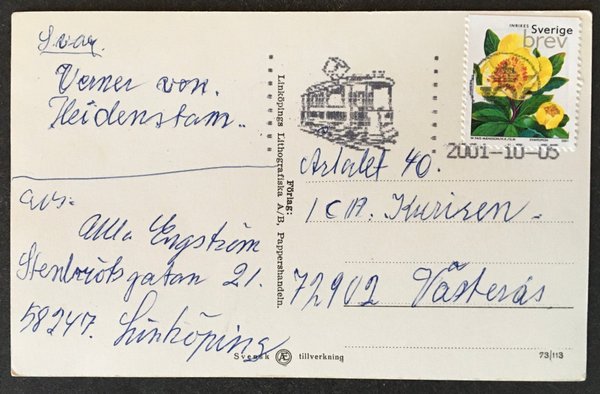 Svar.
Verner von.
Heidenstam.
avs.
Ulla Engström
Stenbrötsgatan 21.
58247. Linköping
Förlag:
Linköpings Lithografiska A/B, Pappershandeln.
INRIKES Sverige
brev
2001-10-05
Artalet 40.
ICA. Kurisen.
72902 Västerås
Svensk Æ tillverkning
73/113